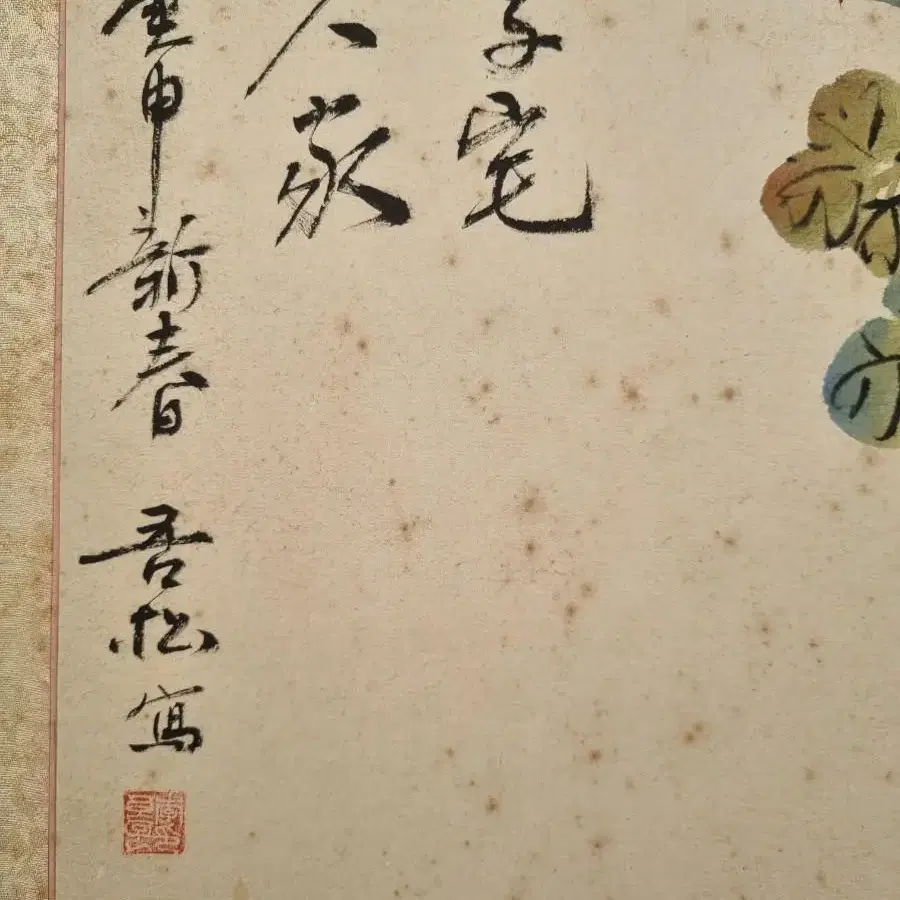 子宅
人家
申新春 吾松寫